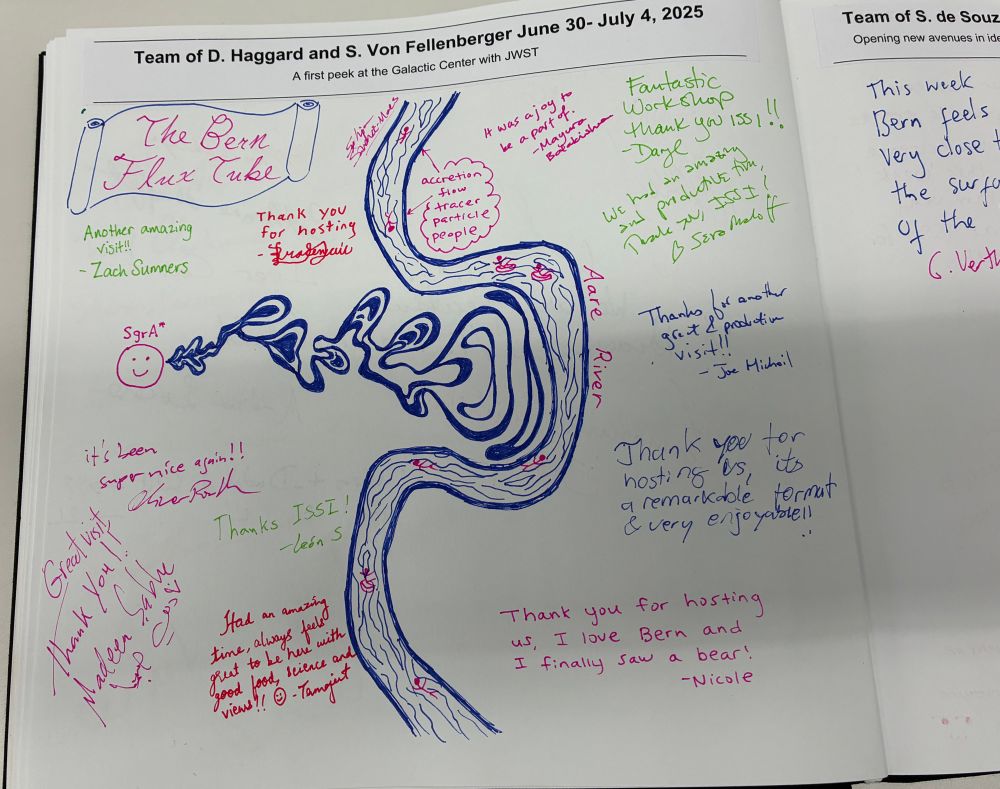 Team of D. Haggard and S. Von Fellenberger June 30- July 4, 2025
A first peek at the Galactic Center with JWST
The Bern
Flux Tube
It was a joy to
be a part of.
- Mayura
Balakrishnan
Fantastic
Workshop
thank you ISSI!!
- Daryl
accretion
flow
tracer
particle
people
We had an amazing
and productive time,
Thank you, ISSI!
Another amazing
visit!!
- Zach Sumners
Thank you
for hosting
SgrA*
Aare River
Thanks for another
great & productive
visit!!
- Joe Michail
it's been
super nice again!!
Thank you for
hosting us, its
a remarkable format
& very enjoyable!!
Thanks ISSI!
- León S
Great visit
Thank you!!
Had an amazing
time, always feels
great to be here with
good food, science and
views!! - Tamojeet
Thank you for hosting
us, I love Bern and
I finally saw a bear!
- Nicole
Team of S. de Souz
Opening new avenues in ide
This week
Bern feels
very close t
the surfa
of the